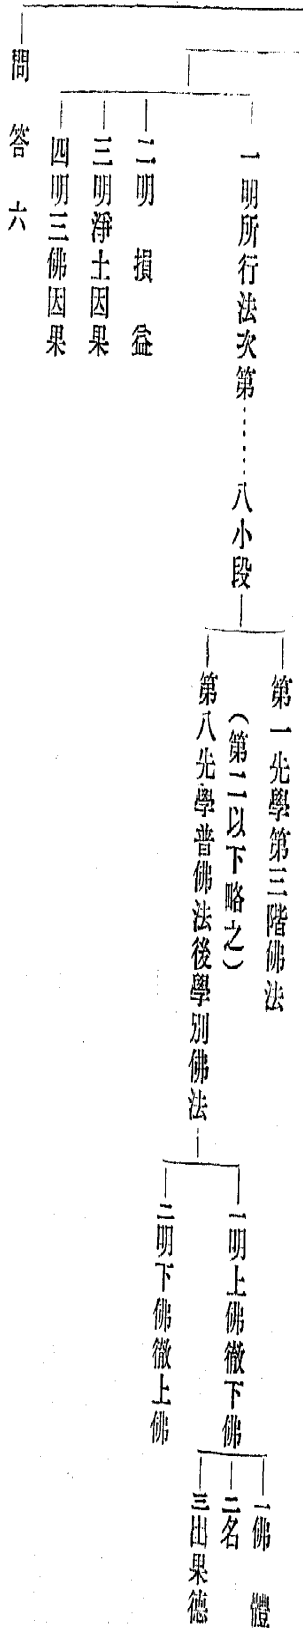 一明所行法次第……八小段
第一先學第三階佛法
(第二以下略之)
第八先學普佛法後學別佛法
一明上佛徹下佛
一佛體
二名
三出果德
二明下佛徹上佛
二明損益
三明淨土因果
四明三佛因果
問答六